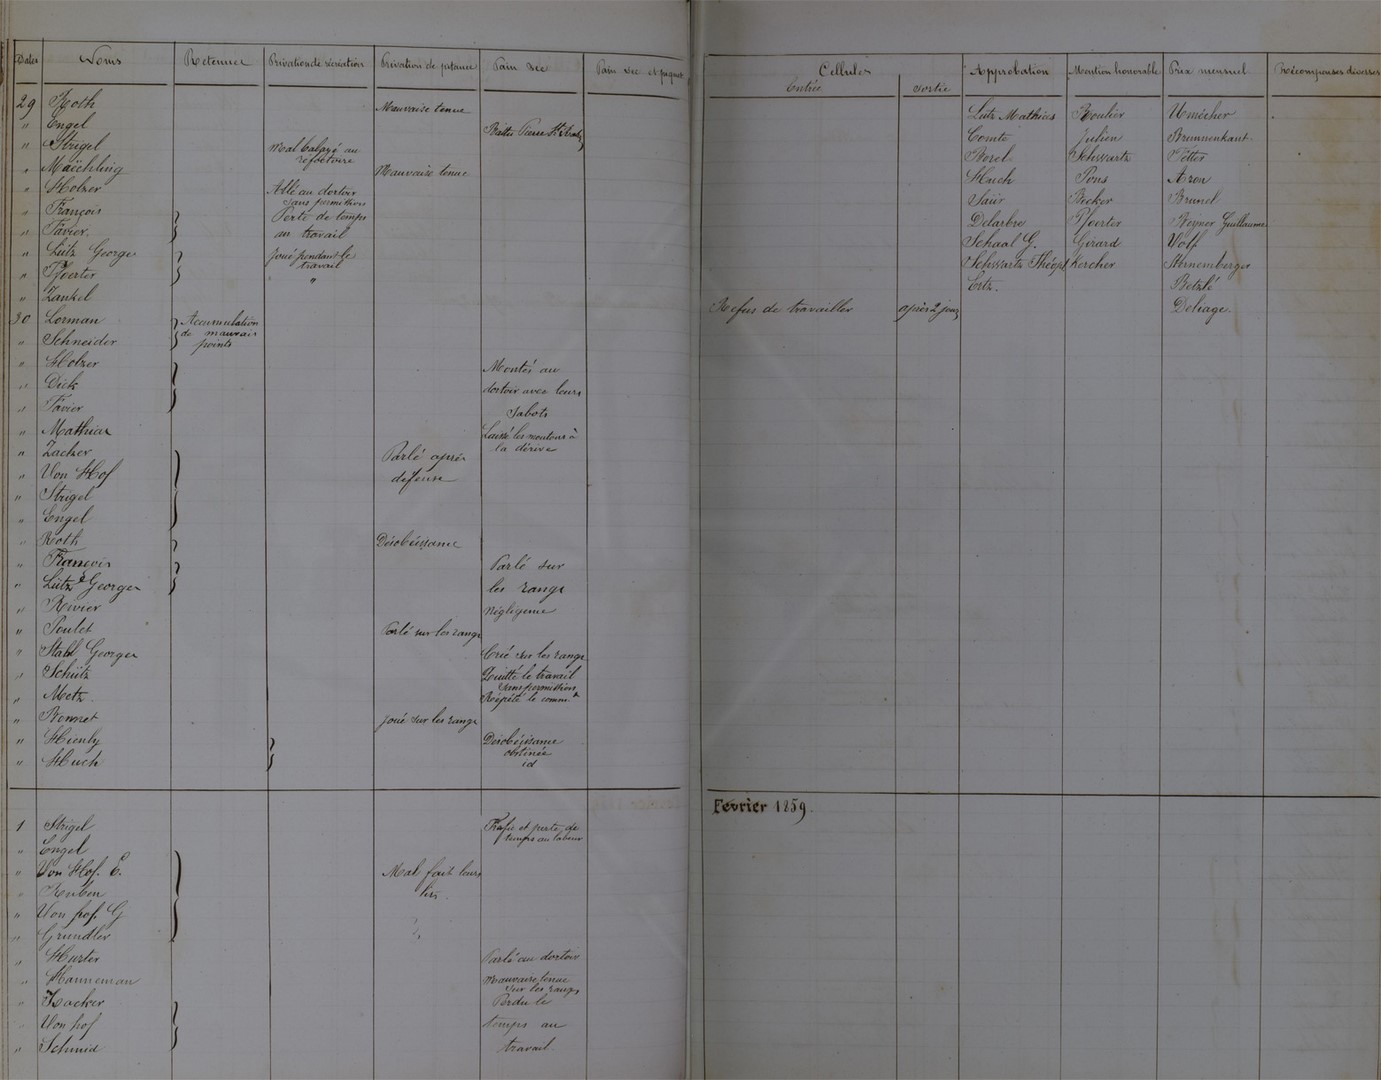 Dates Noms Retenue Privation de récréation Privation de pitance Pain sec Pain sec et piquet
29 Roth Mauvaise tenue
" Engel
" Strigel Mal balayé au réfectoire
" Maëchling Mauvaise tenue
" Holzer Allé au dortoir sans permission
" François Perte de temps
" Favier au travail
" Lutz Georges Joué pendant le travail
" Pfoerter "
" Zankel
30 Lorman Accumulation de mauvais points
" Schneider
" Holzer Montés au
" Dick dortoir avec leurs
" Favier sabots
" Mathias Laissé les moutons à la dérive
" Zacher Parlé après
" Von Hof défense
" Strigel
" Engel
" Roth Désobéissance
" François Parlé sur
" Lutz Georges les rangs
" Rivier Négligence
" Poulet Parlé sur les rangs
" Stahl Georges Crié sur les rangs
" Schütz Quitté le travail sans permission
" Metz Répété le comm.t
" Bonnet Joué sur les rangs
" Hienly Désobéissance obstinée
" Huch id
1 Strigel Refus et perte de temps au labour
" Engel
" Von Hof. E. Mal fait leurs
" Kuben lits.
" Von hof. G
" Grundler
" Hurter Parlé au dortoir
" Hanneman Mauvaise tenue sur les rangs
" Kocker Perdu le
" Von hof temps au
" Schmid travail.
Cellules Approbation Mention honorable Prix mensuel Récompenses diverses
Entrée Sortie
Lutz Mathias Boulier Umécher
Comte Julien Brunnenkant
Borel Schwartz Tetter
Huch Pons Aron
Saür Becker Brunel
Delarbre Pfoerter Weyner Guillaume
Schaal G. Girard Volf
Schwartz Théop. Kercher Sternemberger
Ertz. Betzlé
Refus de travailler après 2 jours Deliage
Février 1859.